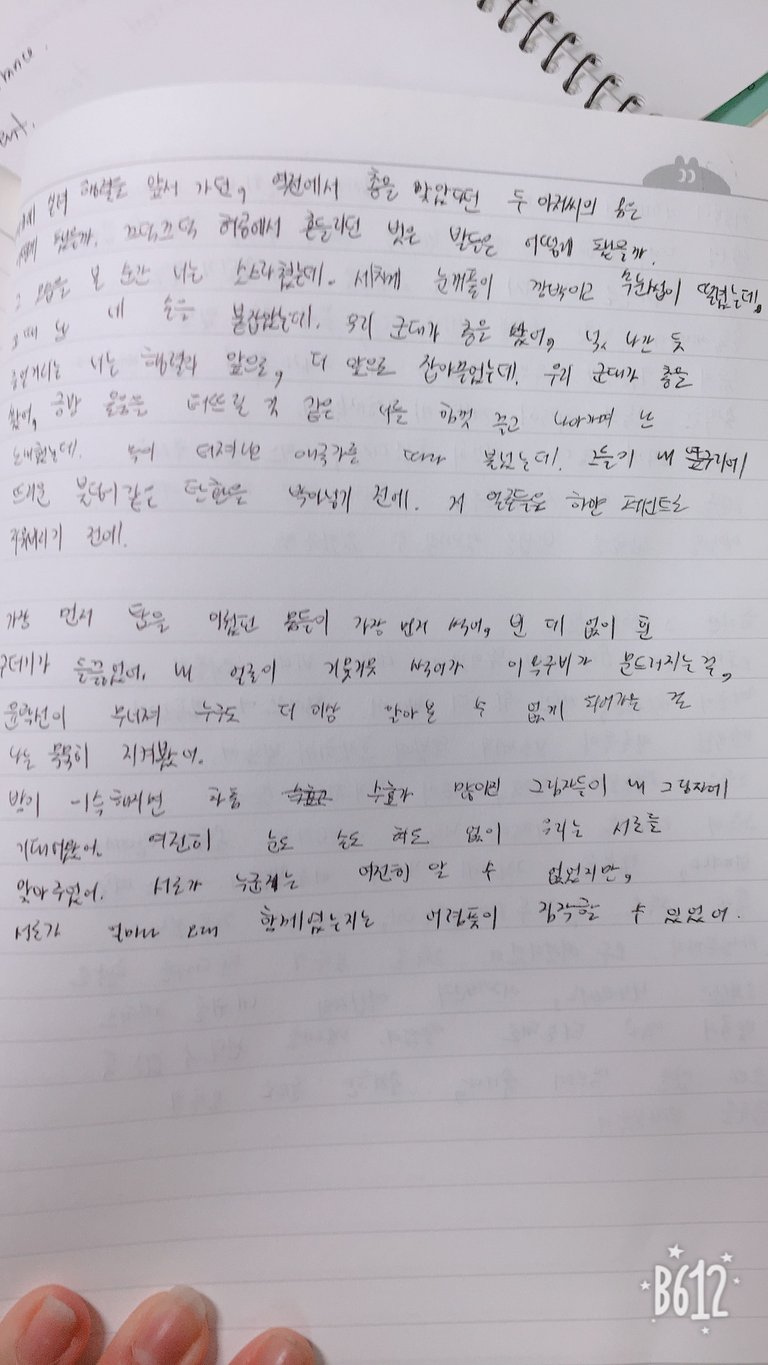 ance.
ent.
행렬을 앞서 가던, 역전에서 총을 맞았다던 두 아저씨의 몸은
됐을까. 끄덕끄덕 허공에서 흔들리던 벗은 발들은 어떻게 됐을까.
그 모습을 본 순간 너는 소스라쳤는데. 세차게 눈꺼풀이 깜박이고 속눈썹이 떨렸는데,
그때 난 네 손을 붙잡았는데. 우리 군대가 총을 쐈어, 넋 나간 듯
너는 행렬의 앞으로, 더 앞으로 잡아끌었는데. 우리 군대가 총을
쐈어, 금방 울음을 터뜨릴 것 같은 너를 힘껏 끌고 나아가며 난
노래했는데. 목이 터져나라 애국가를 따라 불렀는데. 그들이 내 옆구리에
뜨거운 불덩어리 같은 탄환을 박아넣기 전에. 저 얼굴들을 하얀 페인트로
지워버리기 전에.
가장 먼저 탑을 이뤘던 몸들이 가장 먼저 썩어, 빈 데 없이 흰
구더기가 들끓었어. 내 얼굴이 거뭇거뭇 썩어가 이목구비가 문드러지는 걸,
윤곽선이 무너져 누구도 더 이상 알아볼 수 없게 되어가는 걸
나는 묵묵히 지켜봤어.
밤이 이슥해지면 차츰 수효가 많아진 그림자들이 내 그림자에
기대어왔어. 여전히 눈도 손도 혀도 없이 우리는 서로를
맞아주었어. 서로가 누군지는 여전히 알 수 없었지만,
서로가 얼마나 오래 함께였는지는 어렴풋이 짐작할 수 있었어.
B612